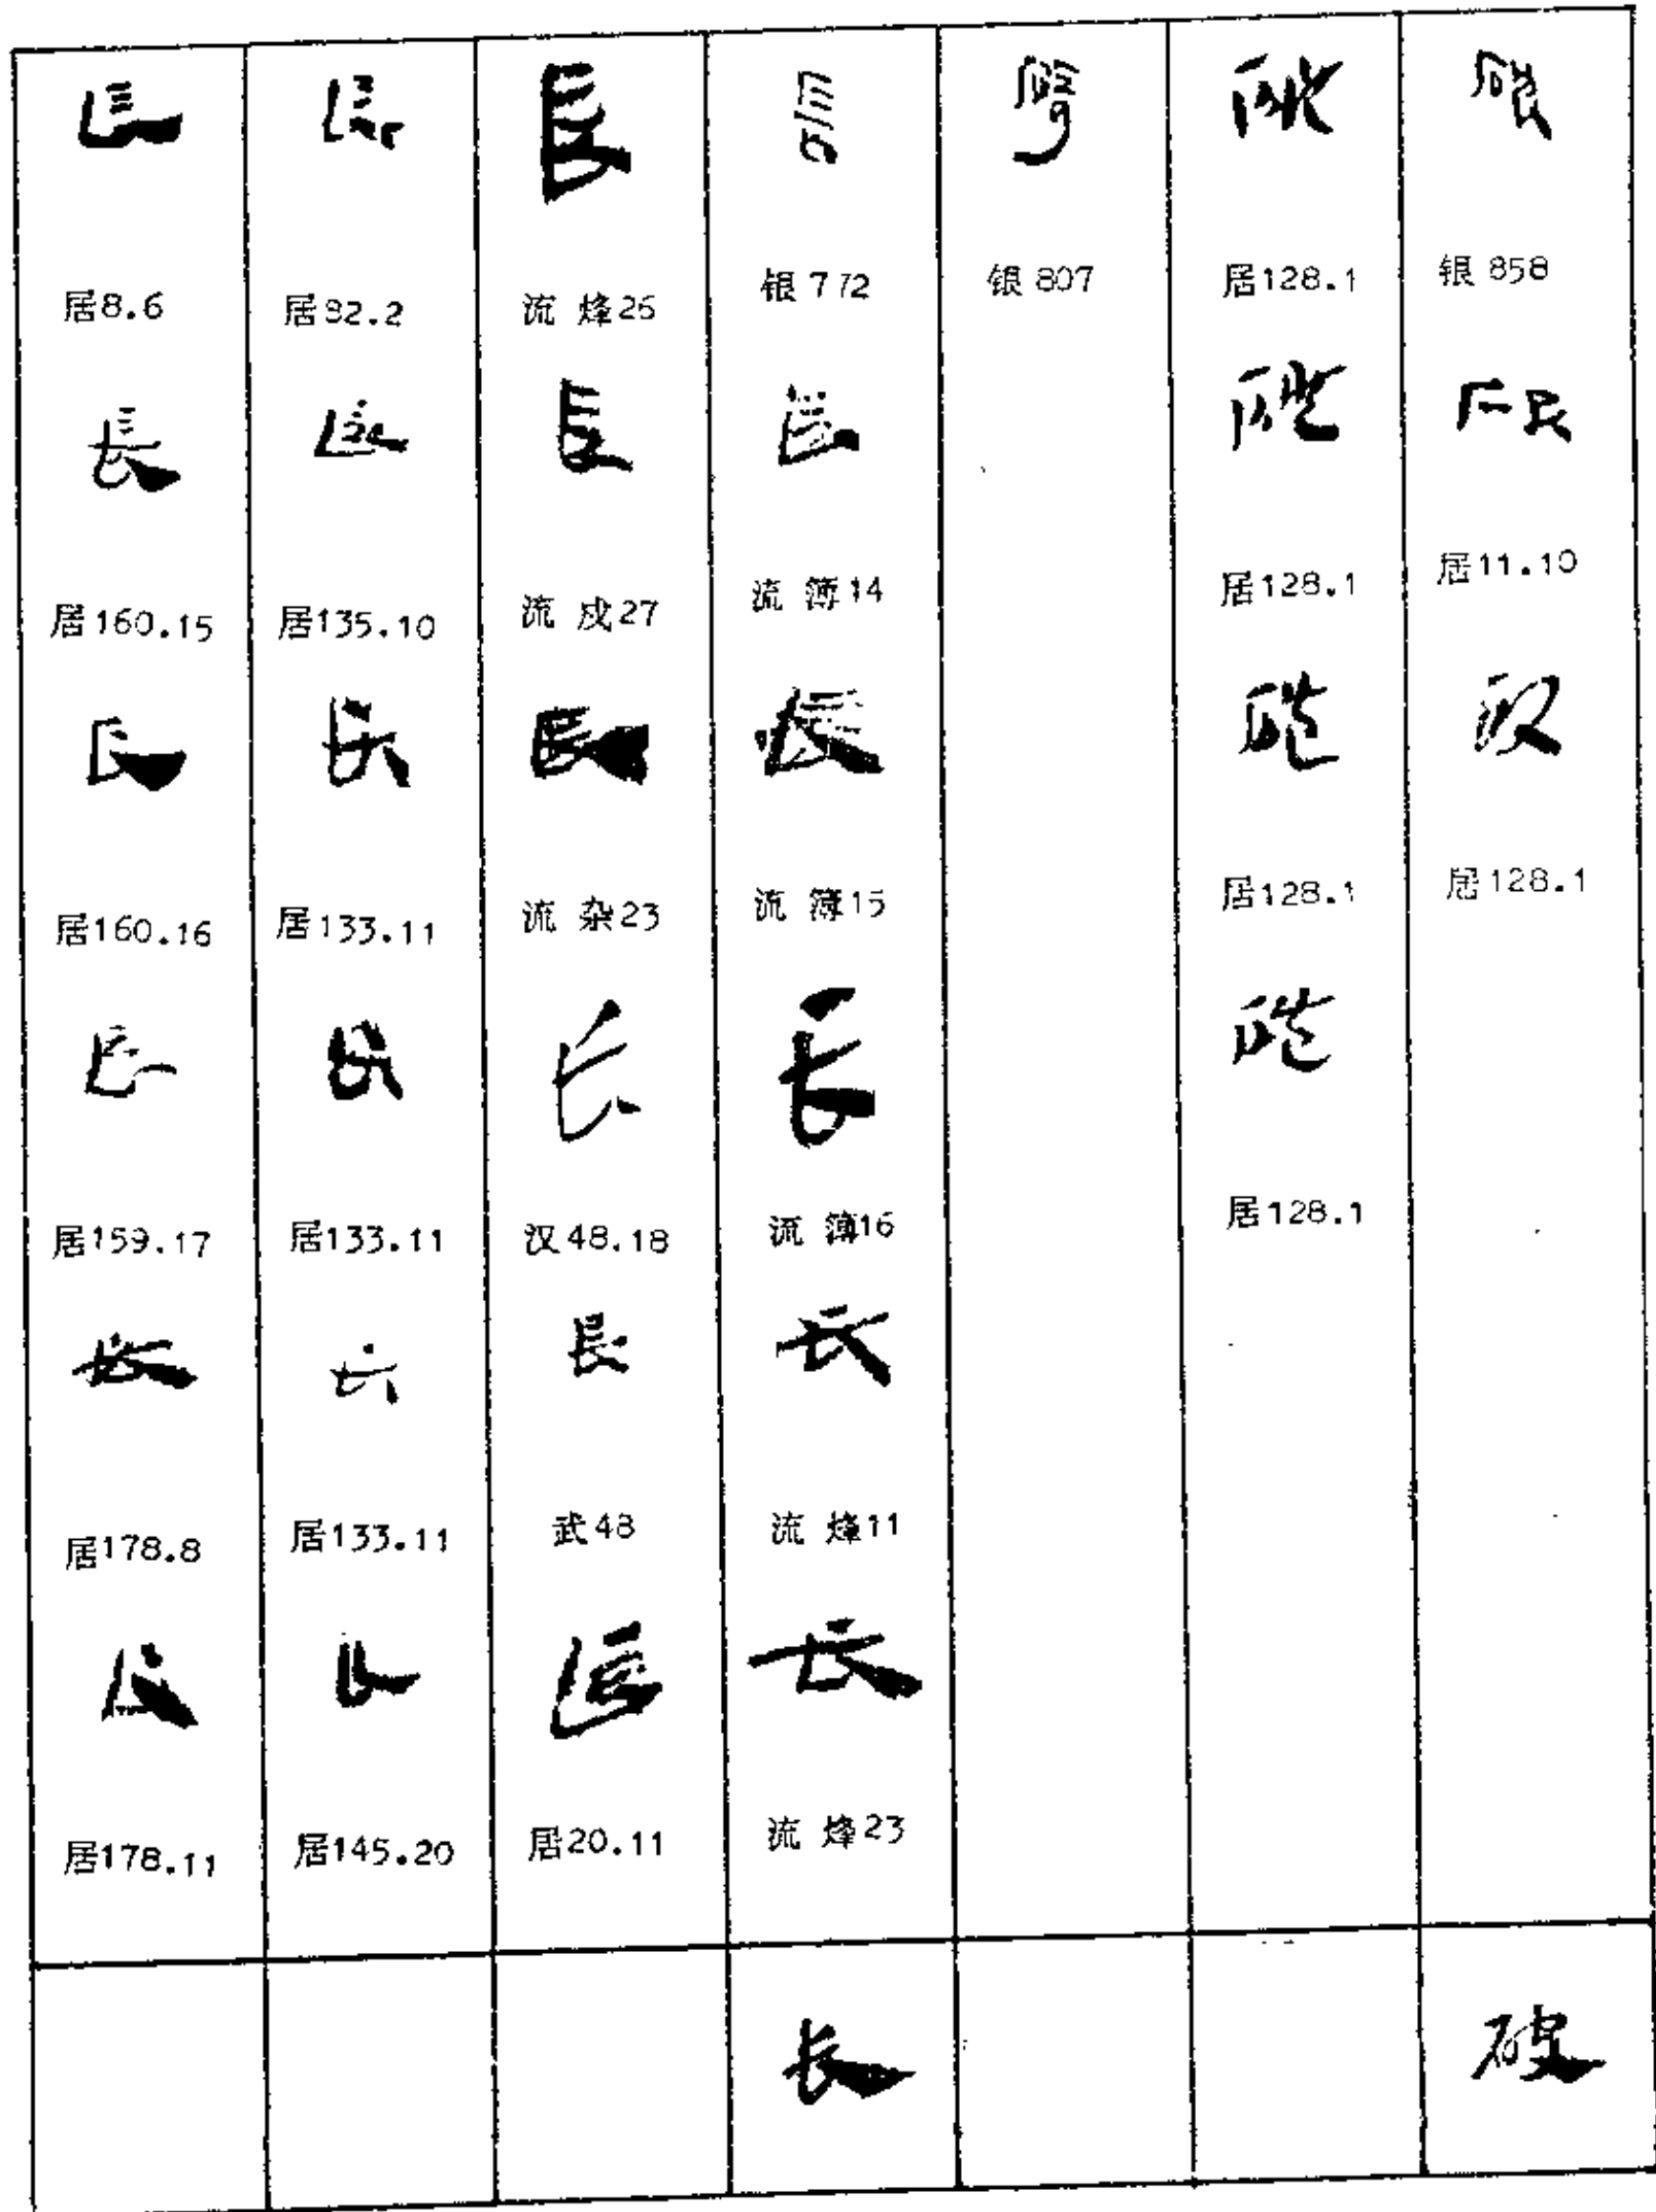 破
银858
破
居11.10
破
居128.1
破
居128.1
居128.1
居128.1
居128.1
银807
長
银772
長
流 簿14
長
流 簿15
长
流 簿16
长
流 烽11
长
流 烽23
长
長
流 烽26
長
流 戍27
長
流 杂23
长
汉48.18
長
武48
長
居20.11
長
居82.2
長
居135.10
长
居133.11
长
居133.11
长
居133.11
长
居145.20
長
居8.6
長
居160.15
長
居160.16
長
居159.17
长
居178.8
长
居178.11